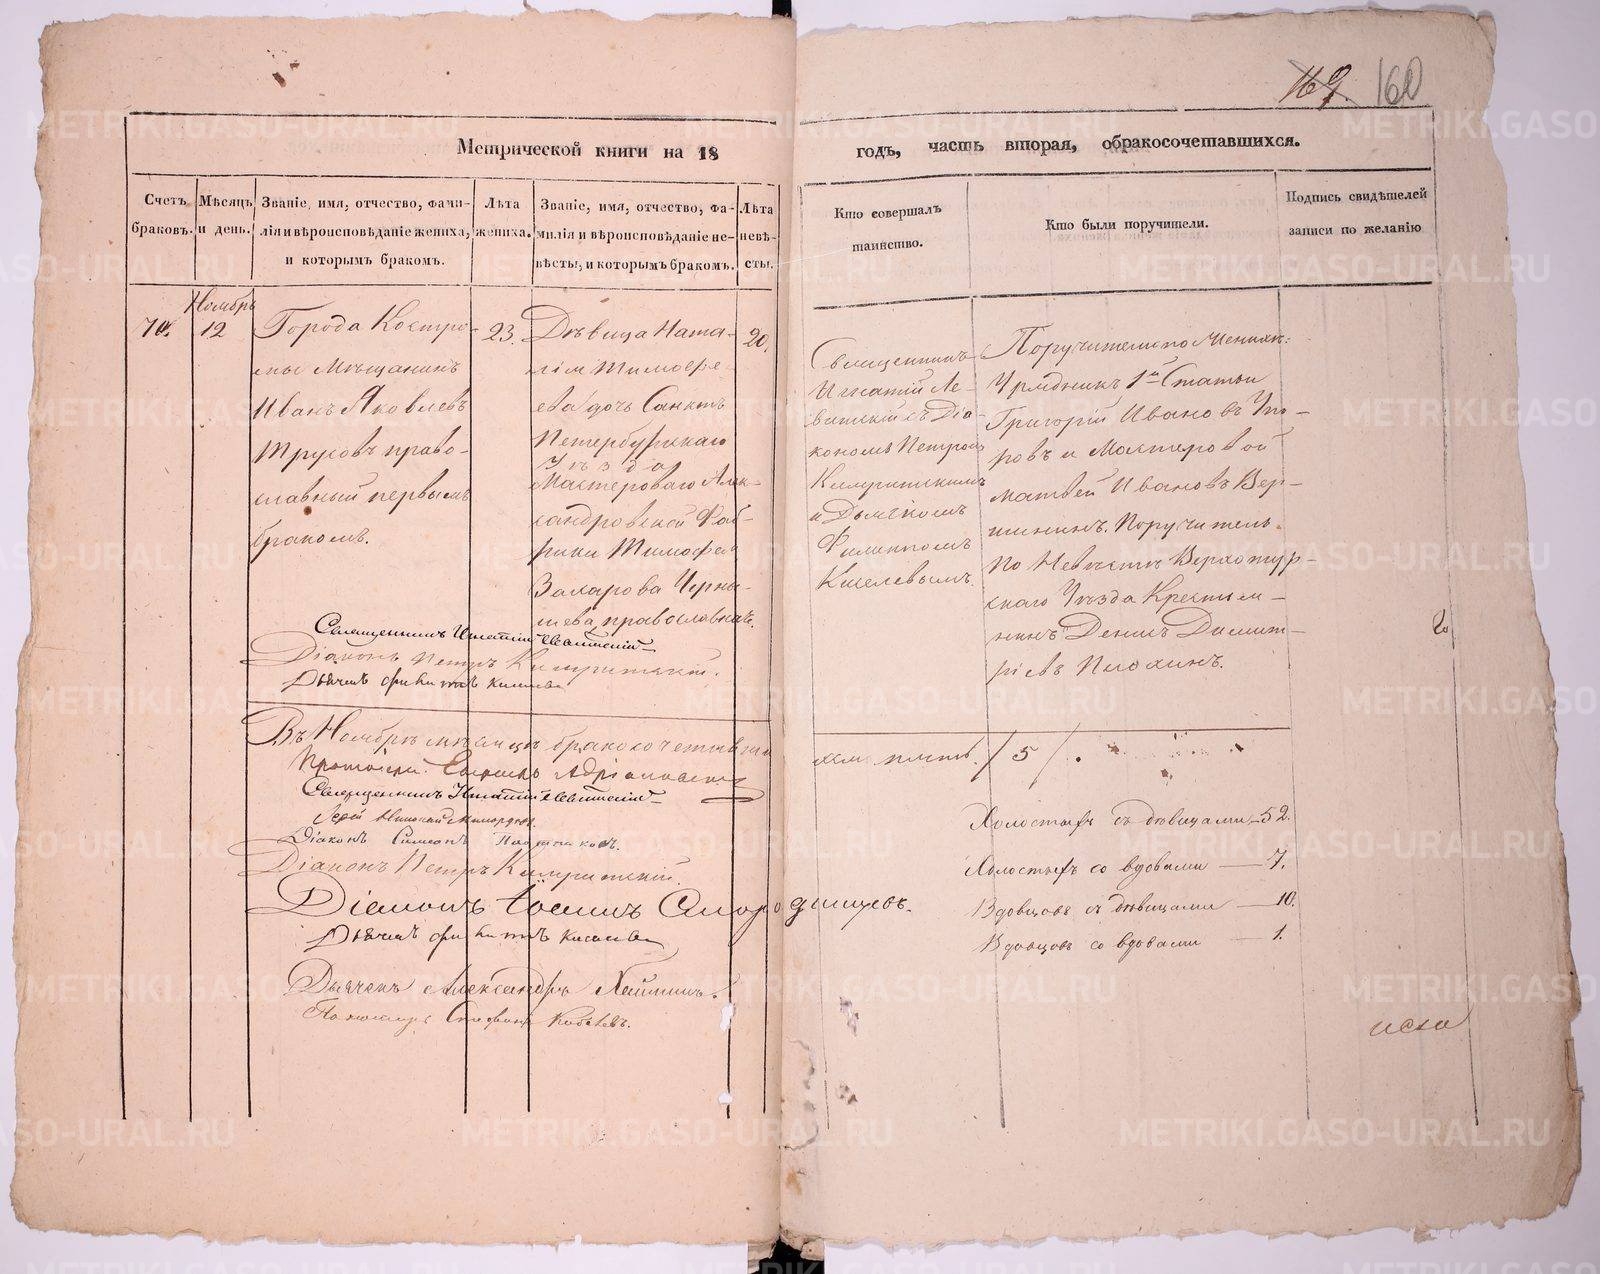 160
Метрической книги на 18
годъ, часть вторая, обракосочетавшихся.
Счетъ браковъ.
Мѣсяцъ и день.
Званіе, имя, отчество, фами-
лія и вѣроисповѣданіе жениха,
и которымъ бракомъ.
Лѣта
жениха.
Званіе, имя, отчество, фа-
милія и вѣроисповѣданіе не-
вѣсты, и которымъ бракомъ.
Лѣта
невѣ-
сты.
Кто совершалъ
таинство.
Кто были поручители.
Подпись свидѣтелей
записи по желанію
70.
Ноябрь
12
Города Костро-
мы Мѣщанинъ
Иванъ Яковлевъ
Трусовъ право-
славный первымъ
бракомъ.
23.
Дѣвица Ната-
лія Тимофе-
ева дочь Санктъ
Петербургскаго
Уѣзда
Мастероваго Алек-
сандровской Фаб-
рики Тимофея
Захарова Черны-
шева, православная.
20.
Священникъ
Игнатій Ле-
витскій съ Діа-
кономъ Петромъ
и Дьячкомъ
Филиппомъ
Киселевымъ.
Поручители по Женихѣ:
Урядникъ 1й Статьи
Григорій Ивановъ Уѣ-
ровъ и Мастеровой
Матвей Ивановъ Вер-
шининъ. Поручитель
по Невѣстѣ Верхотур-
скаго Уѣзда Крестья-
нинъ Денисъ Димит-
ріевъ
Священникъ Игнатій Левитскій
Діаконъ Петръ
Дьячекъ Филиппъ Киселевъ
Въ Ноябрѣ мѣсяцѣ бракосочетавших
ся пять. /5/.
Священникъ Игнатій Левитскій
Діаконъ Симеонъ
Діаконъ Петръ
Діаконъ Іоаннъ Смородинцевъ.
Дьячекъ Филиппъ Киселевъ
Дьячекъ Александръ
Пономарь Стефанъ
Холостыхъ съ дѣвицами – 52.
Холостыхъ со вдовами – 7.
Вдовцовъ съ дѣвицами – 10.
Вдовцовъ со вдовами – 1.
METRIKI.GASO-URAL.RU